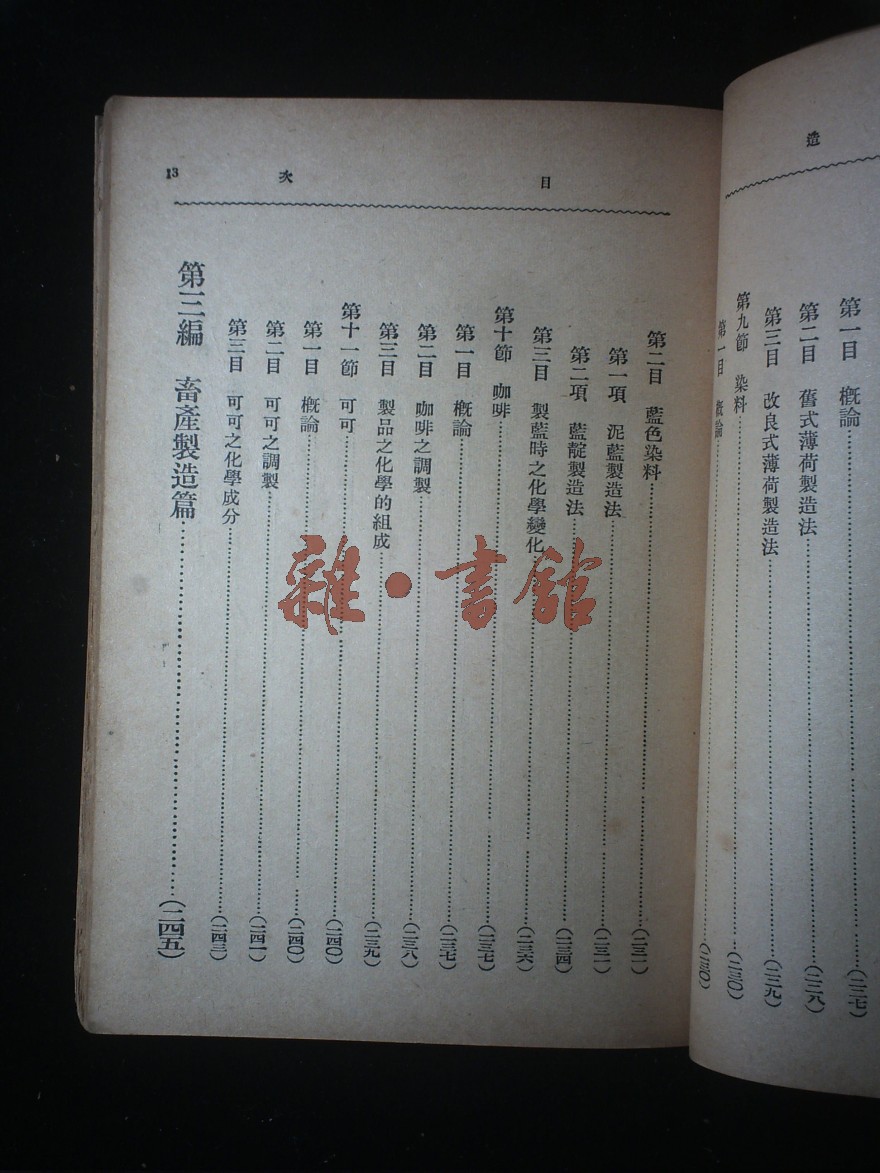 造
第一目 概論……(二二七)
第二目 舊式薄荷製造法……(二二八)
第三目 改良式薄荷製造法……(二二九)
第九節 染料……(二三〇)
第一目 概論……(二三〇)
目次 13
第二目 藍色染料……(二三一)
第一項 泥藍製造法……(二三二)
第二項 藍靛製造法……(二三四)
第三目 製藍時之化學變化……(二三六)
第十節 咖啡……(二三七)
第一目 概論……(二三七)
第二目 咖啡之調製……(二三八)
第三目 製品之化學的組成……(二三九)
第十一節 可可……(二四〇)
第一目 概論……(二四〇)
第二目 可可之調製……(二四一)
第三目 可可之化學成分……(二四三)
第三編 畜產製造篇……(二四五)
雜·書館